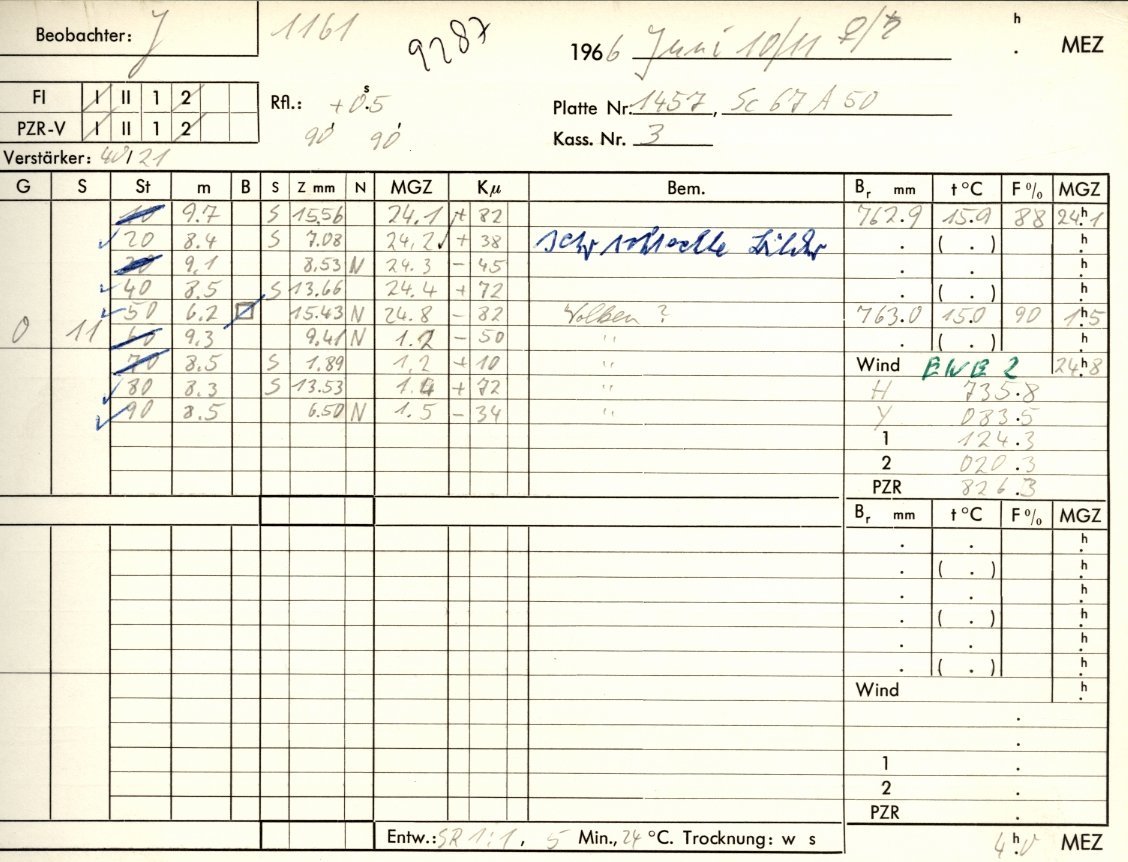 Beobachter: J 1161 9287 1966 Juni 10/11 ♀/♄ h . MEZ
FI I II 1 2
PZR-V I II 1 2
Rfl.: +0s.5
90' 90'
Platte Nr. 1457, Sc 67 A 50
Kass. Nr. 3
Verstärker: 40/21
G S St m B S Z mm N MGZ Kμ Bem. Br mm t °C F % MGZ
9.7 S 15.56 24.1 + 82 762.9 15.9 88 24h.1
20 8.4 S 7.08 24.2 + 38 sehr schlechte Bilder . ( . ) h.
9.1 8.53 N 24.3 - 45 . . h.
40 8.5 S 13.66 24.4 + 72 . ( . ) h.
50 6.2 15.43 N 24.8 - 82 Wolken ? 763.0 15.0 90 1h.5
0 11 60 9.3 9.41 N 1.2 - 50 " . ( . ) h.
70 8.5 S 1.89 1.2 + 10 " Wind ENE 2 24h.8
80 8.3 S 13.53 1.4 + 72 " H 735.8
90 8.5 6.50 N 1.5 - 34 " Y 083.5
1 124.3
2 020.3
PZR 826.3
Br mm t °C F % MGZ
. . h.
. ( . ) h.
. . h.
. ( . ) h.
. . h.
. ( . ) h.
Wind h.
.
.
1 .
2 .
PZR .
Entw.: SR 1:1, 5 Min., 24 °C. Trocknung: w s 4h.0 MEZ